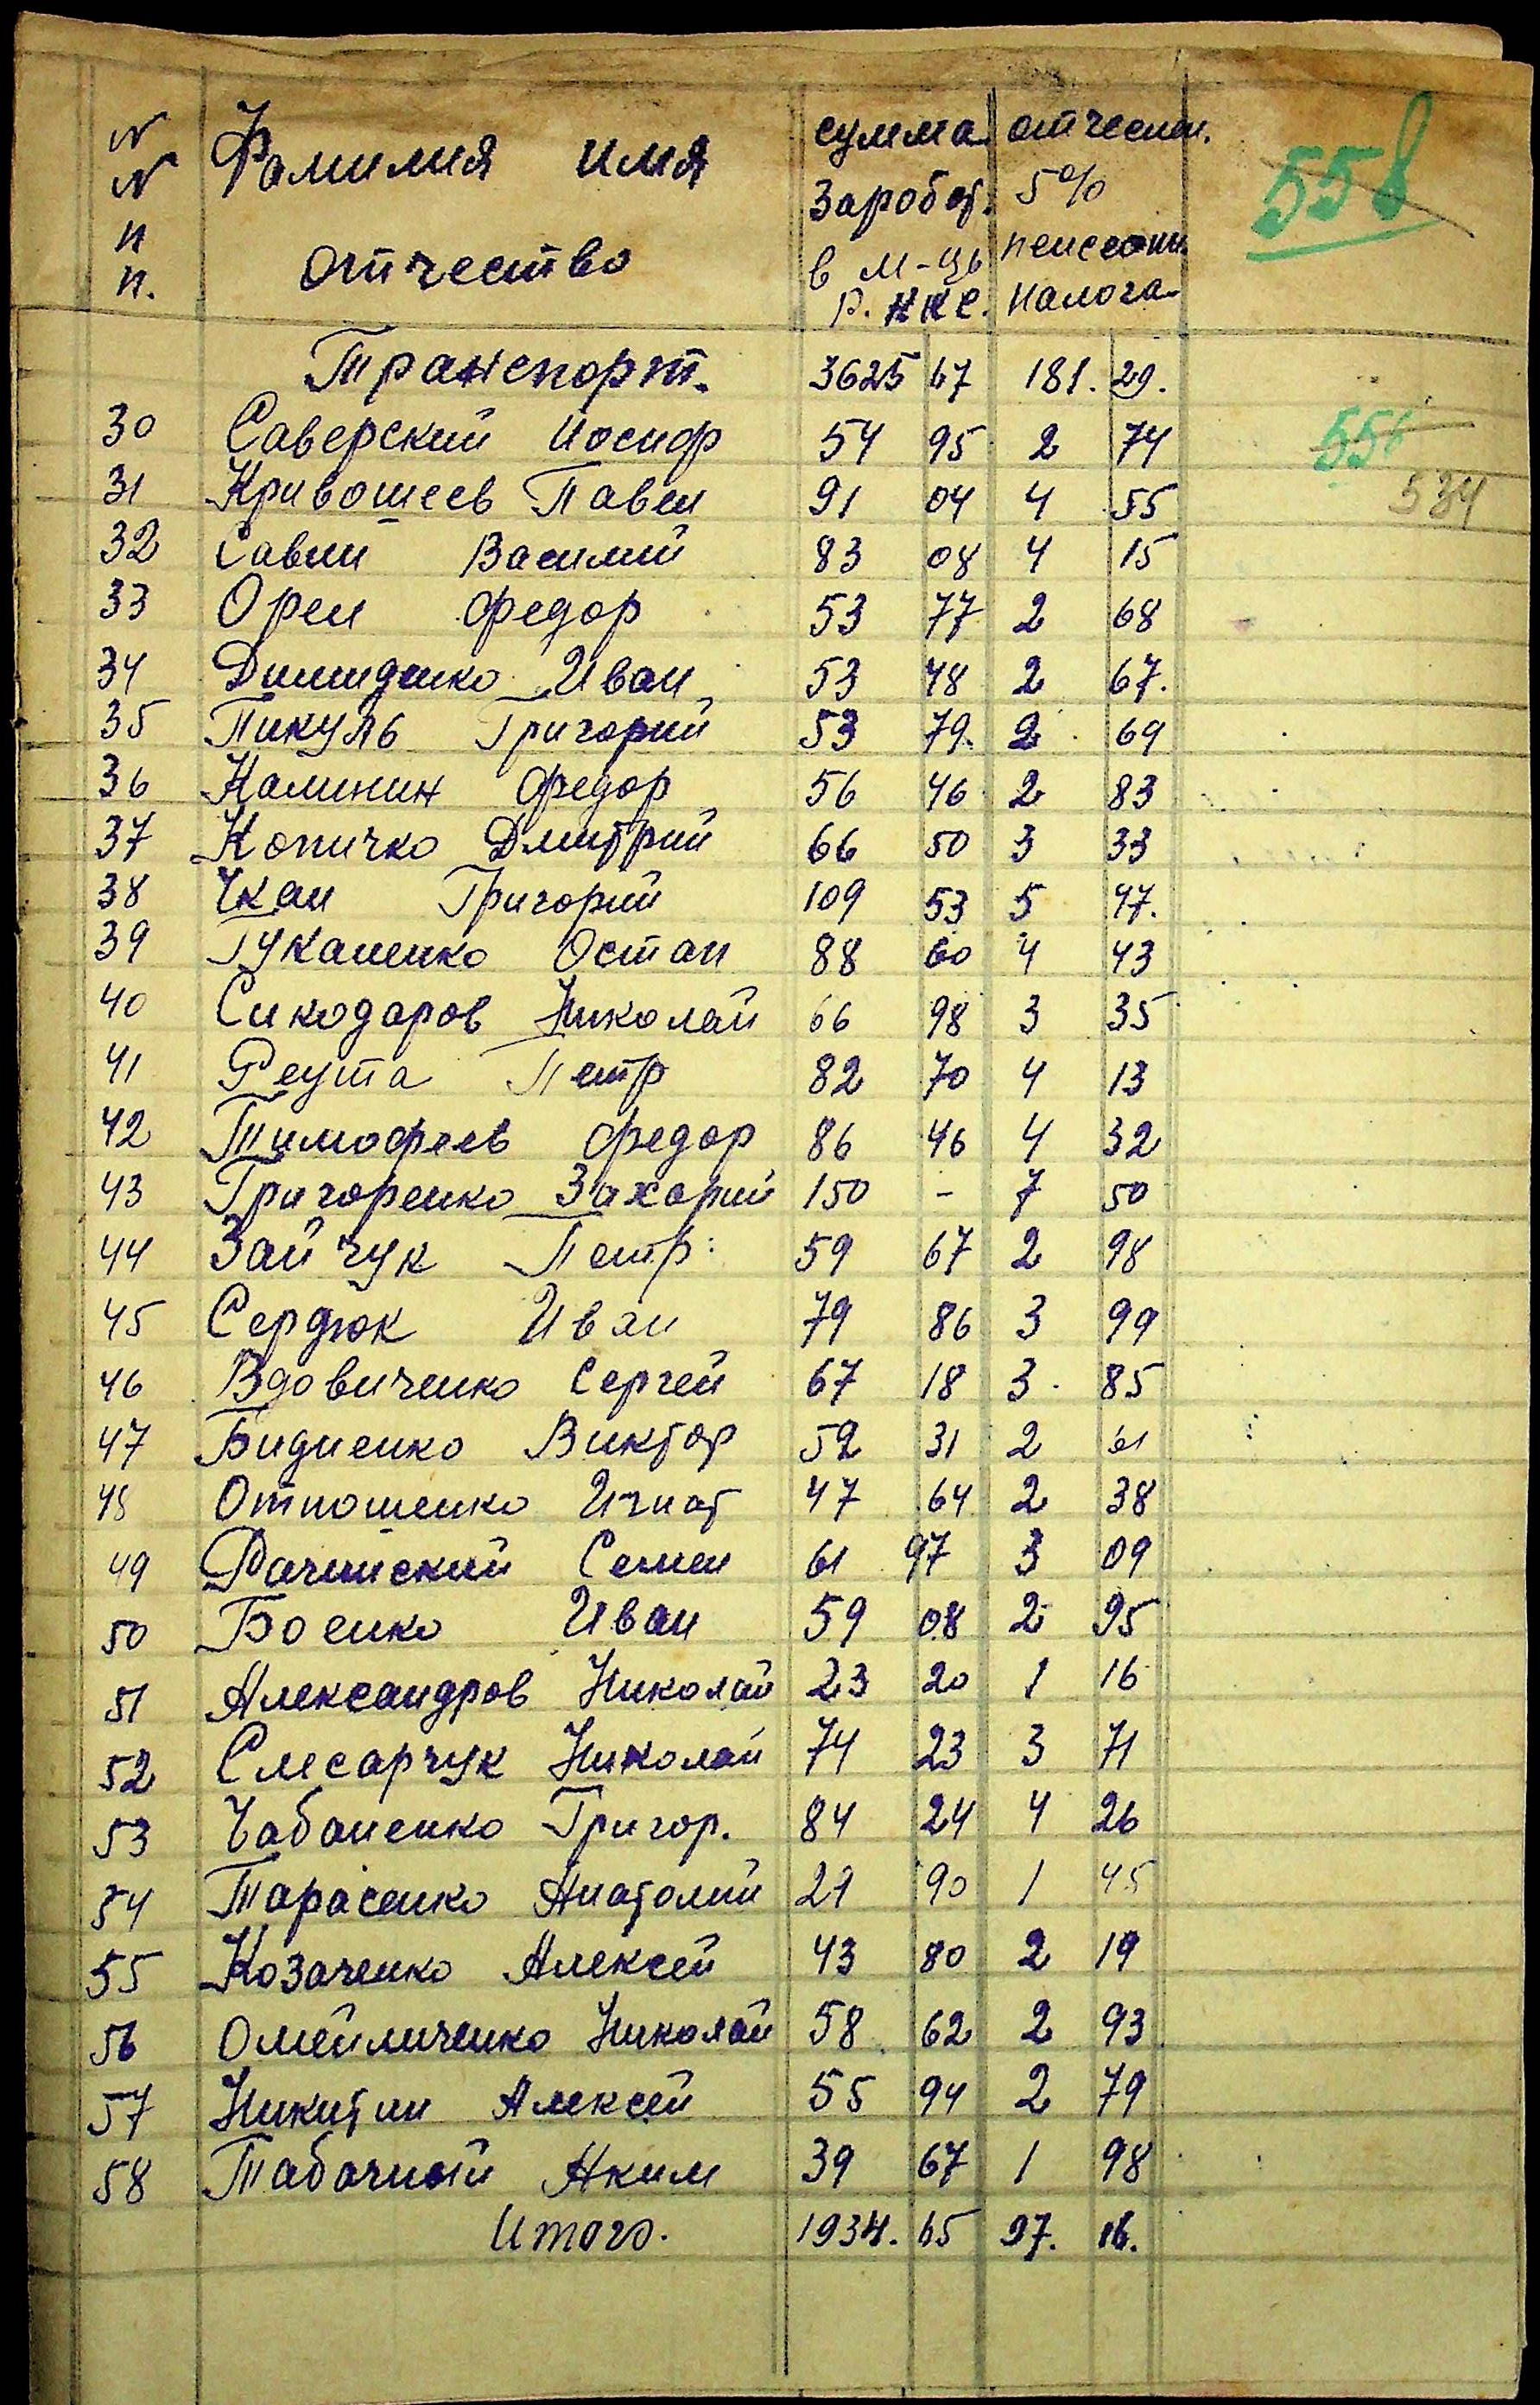 N Фамилия имя сумма отчеслен.
N заробот. 5%
п отчество в м-ць пенсеонн.
п. Р. НКС. налога
558
Транспорт. 3625 67 181. 29.
30 Саверский Иосиф 54 95 2 74
556
31 Кривошеев Павел 91 04 4 55
534
32 Савин Василий 83 08 4 15
33 Орел Федор 53 77 2 68
34 Димиденко Иван 53 48 2 67.
35 Пикуль Григорий 53 79 2 69
36 Калинин Федор 56 46 2 83
37 Копичко Дмитрий 66 50 3 33
38 Чкан Григорий 109 53 5 47.
39 Гукаленко Остап 88 60 4 43
40 Сикодаров Николай 66 98 3 35
41 Реута Петр 82 70 4 13
42 Тимофеев Федор 86 46 4 32
43 Григоренко Захарий 150 - 7 50
44 Зайчук Петр 59 67 2 98
45 Сердюк Иван 79 86 3 99
46 Вдовиченко Сергей 67 18 3 85
47 Бидненко Виктор 52 31 2 61
48 Отношенко Игнат 47 64 2 38
49 Рачинский Семен 61 97 3 09
50 Боенко Иван 59 08 2 95
51 Александров Николай 23 20 1 16
52 Слесарчук Николай 74 23 3 71
53 Чабаненко Григор. 84 24 4 26
54 Тарасенко Анатолий 29 90 1 45
55 Козаченко Алексей 43 80 2 19
56 Омейличенко Николай 58 62 2 93
57 Никитин Алексей 55 94 2 79
58 Табачный Аким 39 67 1 98
Итого. 1934. 65 97. 16.